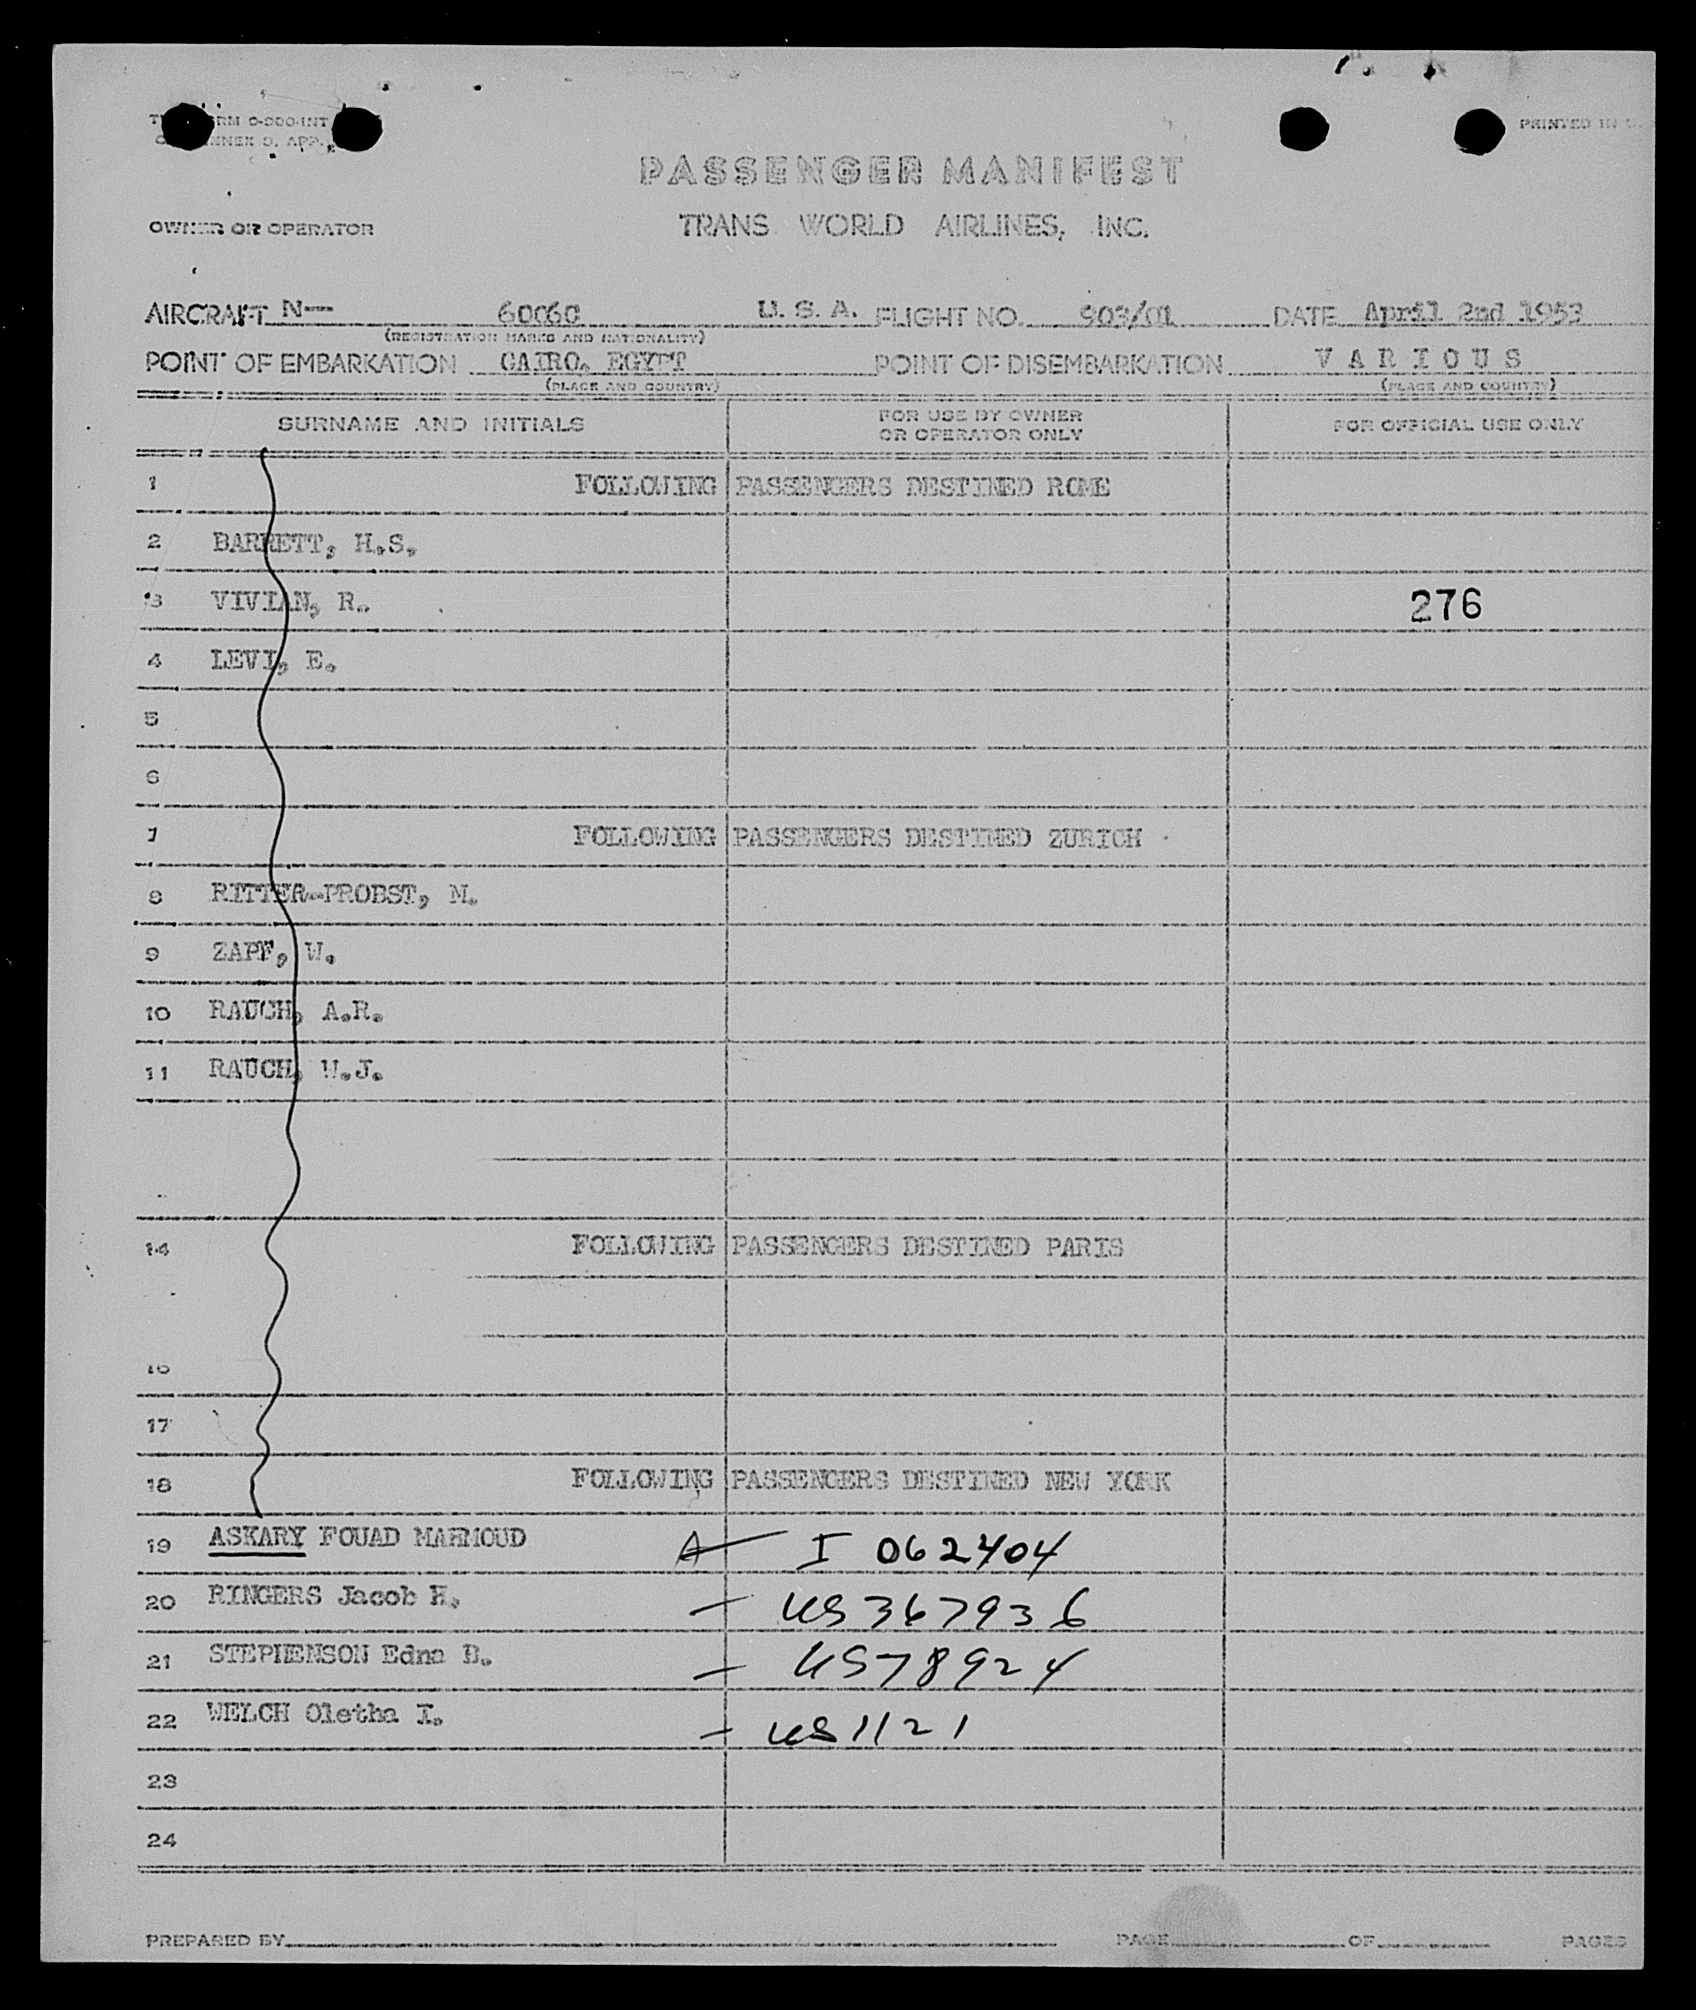 PRINTED IN U.
PASSENGER MANIFEST
OWNER OR OPERATOR TRANS WORLD AIRLINES, INC.
AIRCRAFT N-- 60060 U. S. A. FLIGHT NO. 903/01 DATE April 2nd 1953
(REGISTRATION MARKS AND NATIONALITY)
POINT OF EMBARKATION CAIRO. EGYPT POINT OF DISEMBARKATION V A R I O U S
(PLACE AND COUNTRY) (PLACE AND COUNTRY)
SURNAME AND INITIALS FOR USE BY OWNER OR OPERATOR ONLY FOR OFFICIAL USE ONLY
1 FOLLOWING PASSENGERS DESTINED ROME
2 BARRETT, H.S.
3 VIVIAN, R. 276
4 LEVI, E.
5
6
7 FOLLOWING PASSENGERS DESTINED ZURICH
8 RITTER-PROBST, M.
9 ZAPF, W.
10 RAUCH, A.R.
11 RAUCH, W.J.
14 FOLLOWING PASSENGERS DESTINED PARIS
16
17
18 FOLLOWING PASSENGERS DESTINED NEW YORK
19 ASKARY FOUAD MAHMOUD A — I 062404
20 RINGERS Jacob H. — US 367936
21 STEPHENSON Edna B. — US 78924
22 WELCH Oletha I. — US 1121
23
24
PREPARED BY PAGE OF PAGES